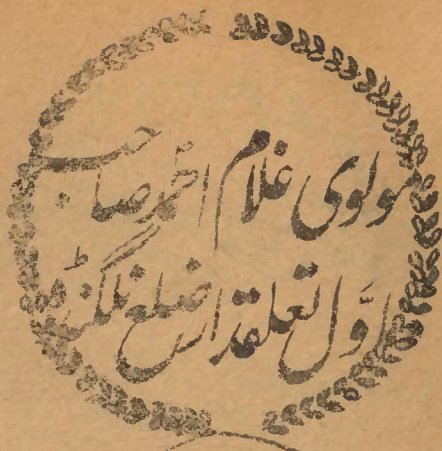 مولوی غلام احمد صاحب
اوّل تعلقدار ضلع نلگنڈہ